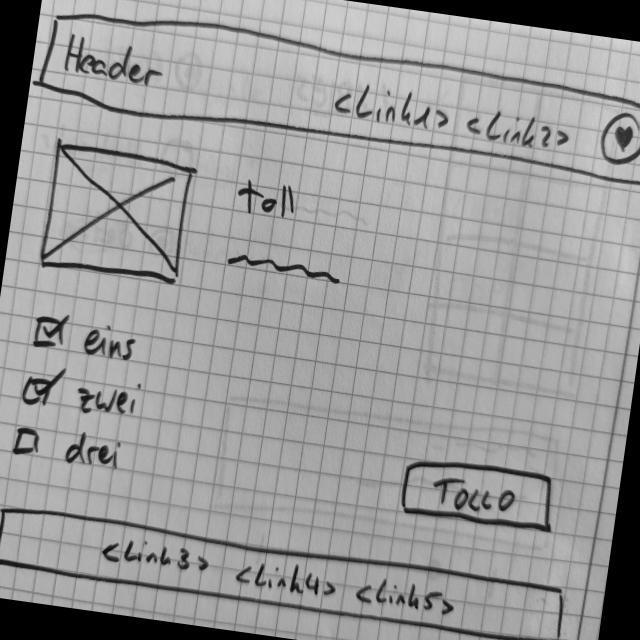 Header
<Link1> <Link2>
toll
eins
zwei
drei
Tocco
<Link3> <Link4> <Link5>